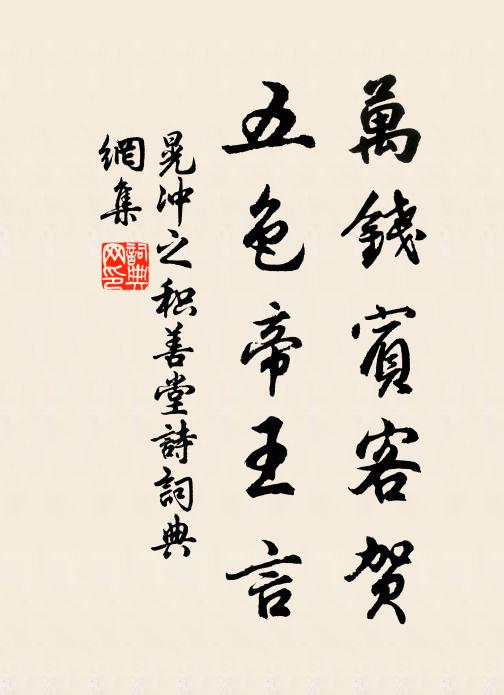 萬錢賓客賀
五色帝王言
晁沖之积善堂詩詞典
網集
詞典
网印